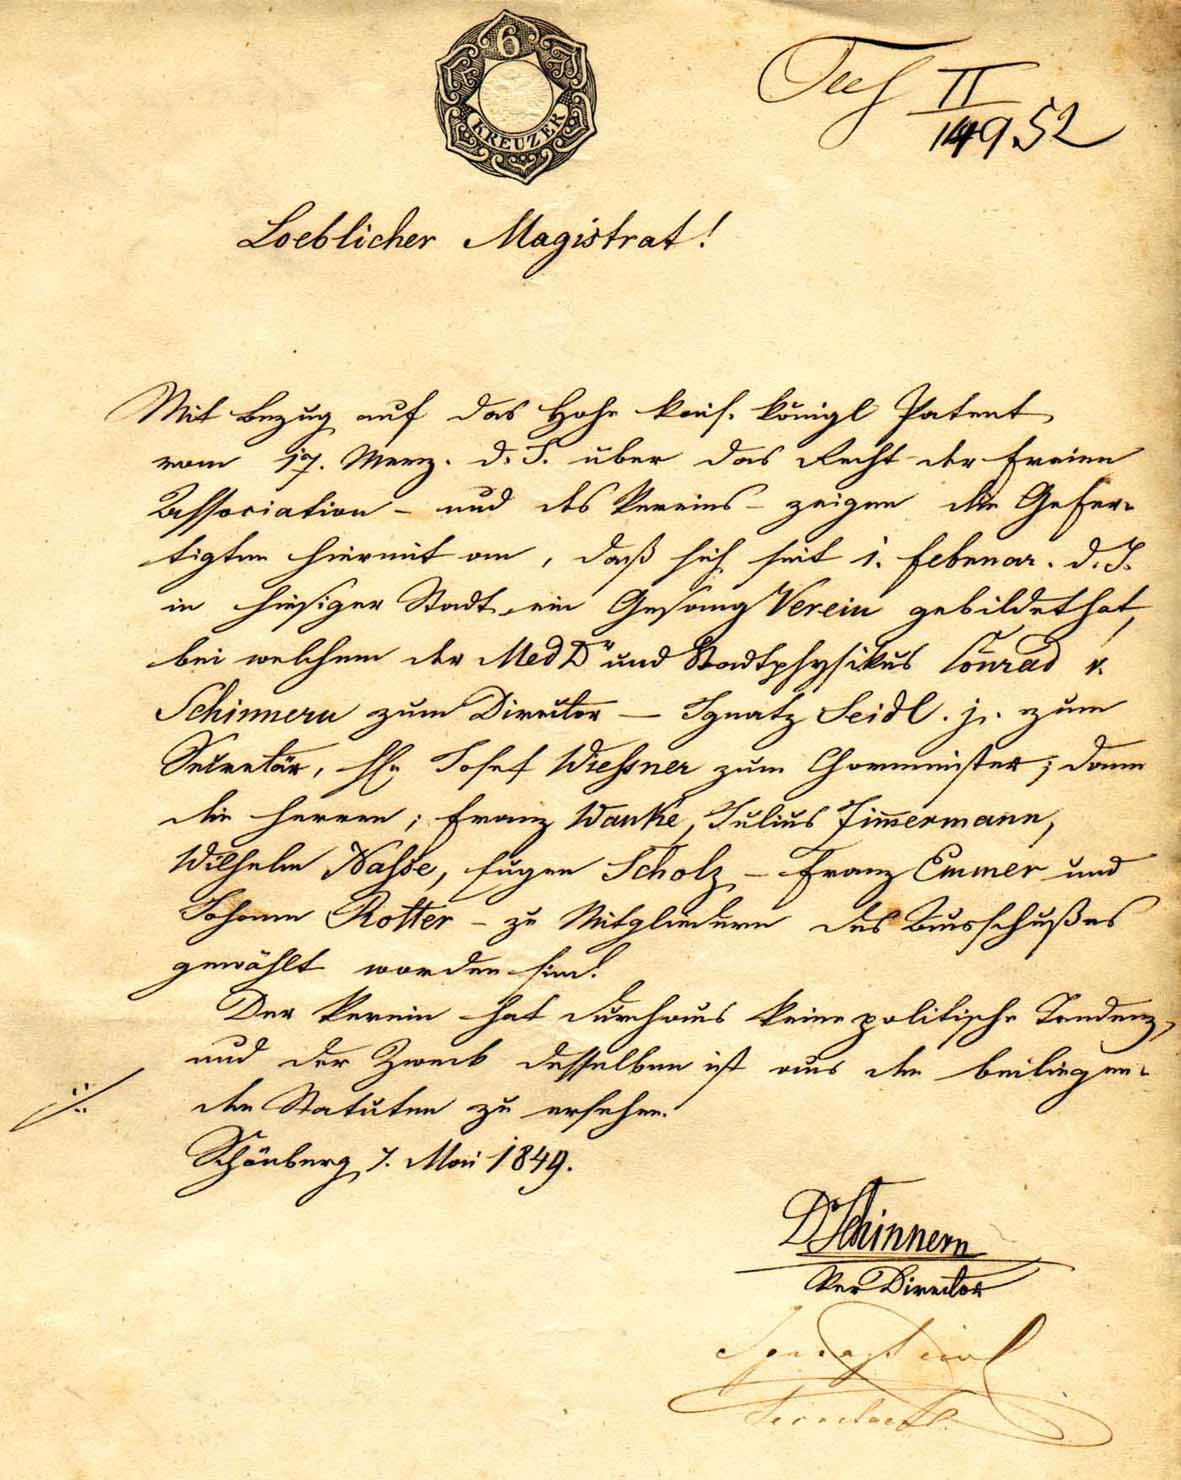 6
KREUZER
II
149.52
Loeblicher Magistrat!
Mit Bezug auf das Hohe kais. königl Patent
vom 17. Merz. d. J. über das Recht der freien
Association – und des Vereins – zeigen die Gefer-
tigten hiermit an, daß sich seit 1. Februar. d. J.
in hiesiger Stadt ein Gesang Verein gebildet hat,
bei welchem der Med Dr und Stadtphysikus Conrad v.
Schinnern zum Director — Ignatz Seidl. j. zum
Secretär, Josef Wiessner zum Chormeister; dann
die Herren; Franz Wanke, Julius Zimmermann,
Wilhelm Eugen Scholz – Franz Emmer und
Johann Rotter – zu Mitgliedern des Ausschußes
gewählt worden sind.
Der Verein hat durchaus keine politische Tendenz,
und der Zweck desselben ist aus den beiliegen-
den Statuten zu ersehen.
Schönberg 7. Mai 1849.
D Schinnern
Der Director